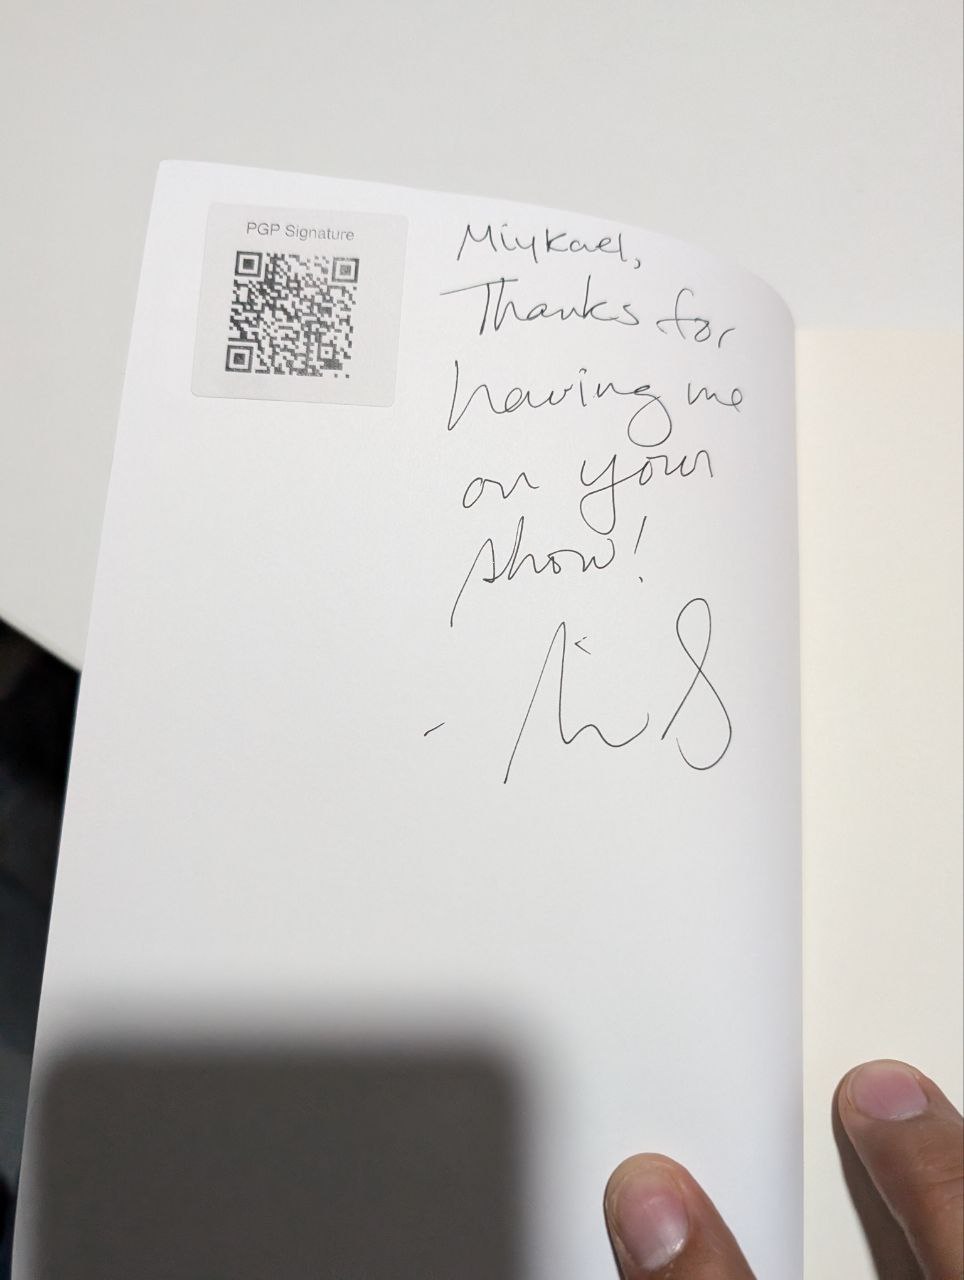 PGP Signature
Miykael,
Thanks for
having me
on your
show!